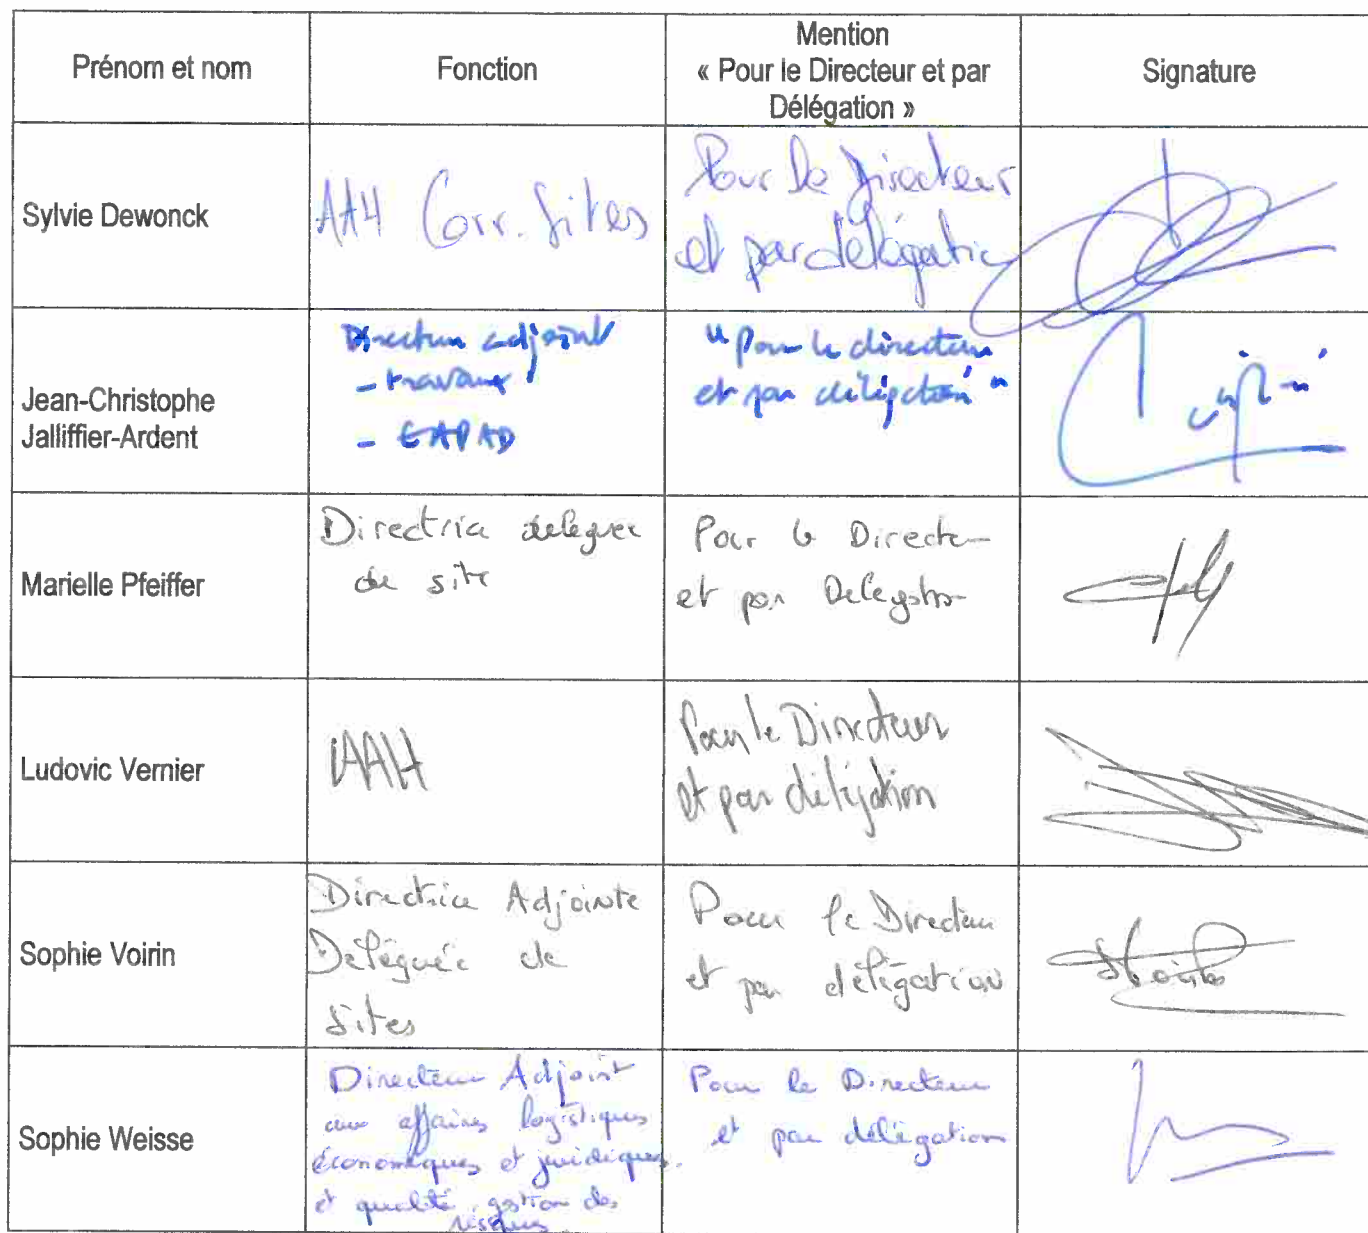 Prénom et nom
Fonction
Mention
« Pour le Directeur et par
Délégation »
Signature
Sylvie Dewonck
AAH Corr. Sites
Pour le Directeur
et par délégatio
Jean-Christophe
Jalliffier-Ardent
Directeur adjoint
- travaux
- EHPAD
"Pour le directeur
et par délégation"
Marielle Pfeiffer
Directrice déléguée
de site
Pour le Directeur
et par Délégation
Ludovic Vernier
AAH
Pour le Directeur
et par délégation
Sophie Voirin
Directrice Adjointe
Déléguée de
Sites
Pour le Directeur
et par délégation
Sophie Weisse
Directeur Adjoint
aux affaires logistiques
économiques et juridiques
et qualité, gestion des
risques
Pour le Directeur
et par délégation